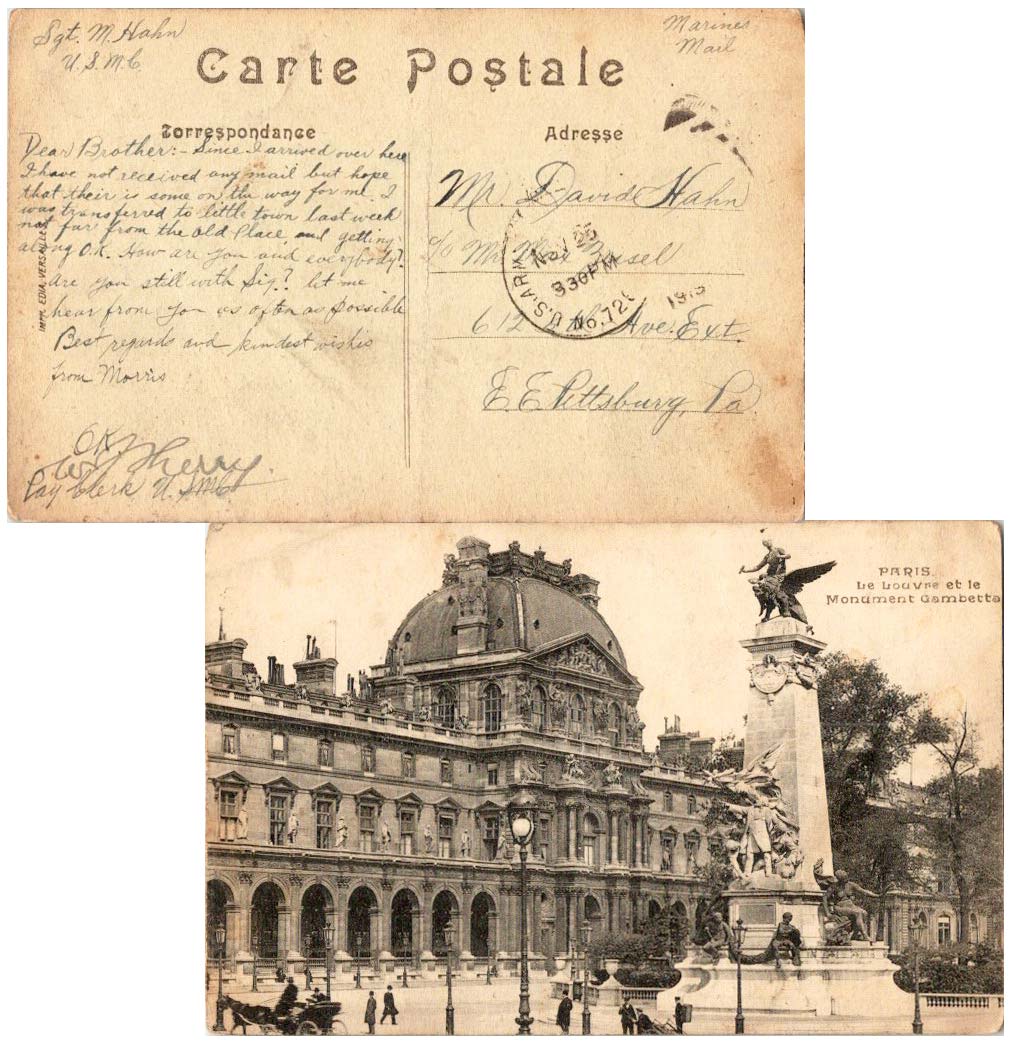 Sgt. M. Hahn
U.S.M.C
Marines
Mail
Carte Postale
Correspondance
Adresse
Dear Brother:- Since I arrived over here
I have not received any mail but hope
that their is some on the way for me. I
was transferred to little town last week
not far from the old Place, and getting
along O.K. How are you and everybody?
Are you still with Sig? let me
hear from you as often as possible
Best regards and kindest wishis
from Morris
O.K.
Sherry.
Pay Clerk U.S.M.C
IMPR. EDIA. VERSAILLES
Mr. David Hahn
c/o Mr.
612 Ave. Ext.
E. E. Pittsburg, Pa.
U.S. ARMY
NOV 25
330PM
No. 72
PARIS.
Le Louvre et le
Monument Gambetta